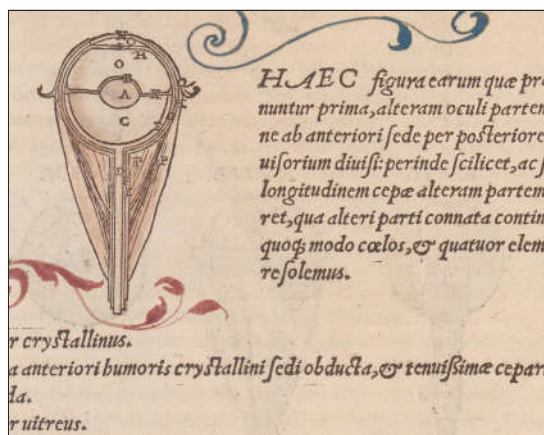 HAEC figura earum quæ pro
nuntur prima, alteram oculi partem
ne ab anteriori sede per posteriore
uisorium diuisi: perinde scilicet, ac s
longitudinem cepæ alteram partem
ret, qua alteri parti connata contin
quoq; modo cœlos, & quatuor elem
re solemus.
r crystallinus.
a anteriori humoris crystallini sedi obducta, & tenuissimæ cepar
da.
r uitreus.